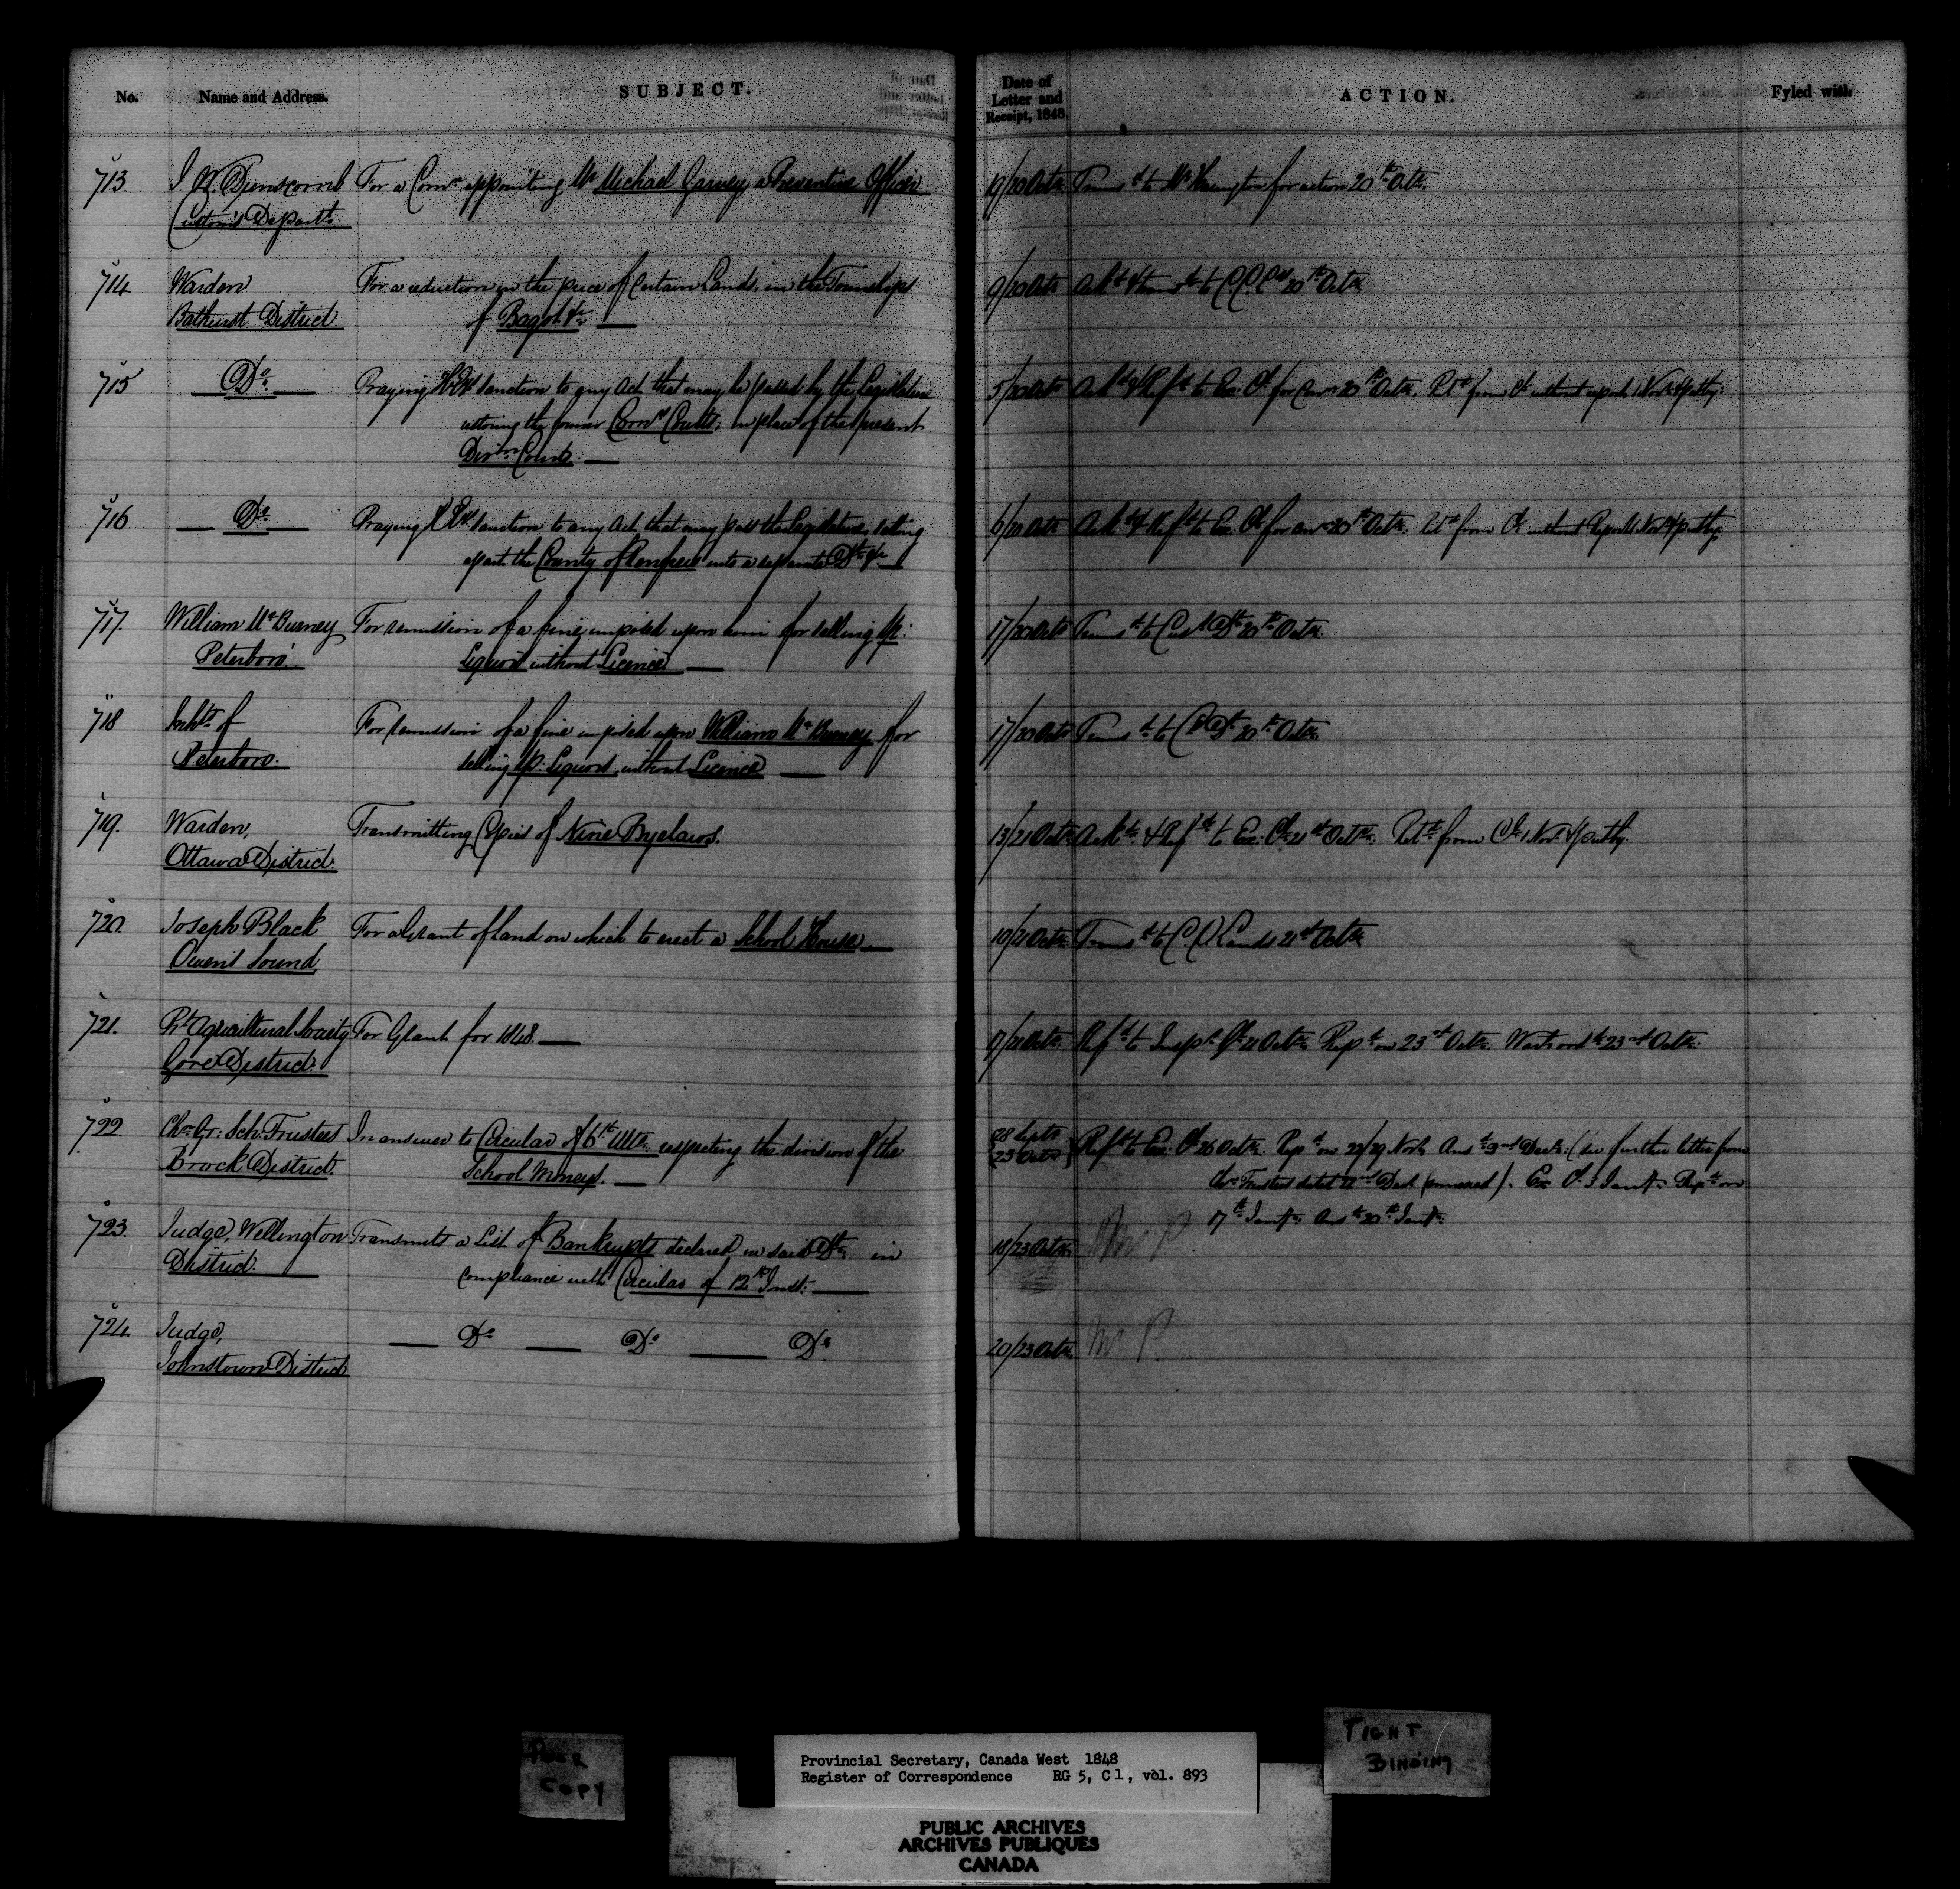 No. Name and Address. SUBJECT. Date of Letter and Receipt, 1848. ACTION. Fyled with
713. J. W. Dunscomb For a Comn appointing Mr Michael Garvey, a Preventive Officer 19/20 Octr Transd to Mr Harington for action 20th Octr.
Custom's Departt.
714 Warden For a reduction in the price of Certain Lands, in the Townships 9/20 Octr Ackd & transd to C.C.Lds 20th Octr.
Bathurst District of Bagot &c.
715 Do Praying H.Ex Sanction to any Act that may be passed by the Legislature 5/20 Octr Ackd & Refd to Ex. Cl. for Conn 20th Octr. Retd from Cl without report 1 Novr & put by.
restoring the former Comrs Courts; in place of the present
Divisn Courts.
716 Do Praying H.Ex sanction to any Act that may pass the Legislature, setting 6/20 Octr Ackd & Refd to Ex. Cl. for con 20th Octr. Retd from Cl. without Report 1 Novr & put by.
apart the County of Renfrew into a separate Dt &c.
717. William McBurney For remission of a fine imposed upon him for selling Sp: 17/20 Octr Transd to C 20th Octr.
Peterboro'. Liquors without Licence
718 Inhts of For remission of a fine imposed upon William McBurney for 17/20 Octr Transd to 20th Octr.
Peterboro. selling Sp: Liquors, without Licence
719. Warden, Transmitting Copies of Nine Byelaws. 13/21 Octr Ackd & Refd to Ex. Cl. 21st Octr. Retd from Cl. 1 Novr & put by.
Ottawa District.
720. Joseph Black For a Grant of land on which to erect a School House 10/21 Octr Transd to C. C. Lands 21st Octr
Owen's Sound
721. Pt Agricultural Society For Grant for 1848. 17/21 Octr Refd to Inspr Gl 21 Octr. Repd on 23rd Octr. Wart ordd 23rd Octr.
Gore District.
722. Chn Gr: Sch: Trustees In answer to Circular of 6th Ulto. respecting the division of the 28 Septr Refd to Ex. Cl. 26 Octr. Repd on 22/29 Novr. Ansd 2nd Decr. (See further letter from
Brock District. School Moneys. 23 Octr Chn Trustees dated 22nd Decr (annexed). Ex Cl. 3 Jany. Repd on
17th Jany. Ansd 20th Jany.
723. Judge, Wellington Transmits a List of Bankrupts declared in said Dt. in 18/23 Octr. P.
District. compliance with Circular of 12th Inst.
724. Judge, Do Do Do 20/23 Octr. P.
Johnstown District
POOR
COPY
Provincial Secretary, Canada West 1848
Register of Correspondence RG 5, C 1, vol. 893
TIGHT
BINDING
PUBLIC ARCHIVES
ARCHIVES PUBLIQUES
CANADA